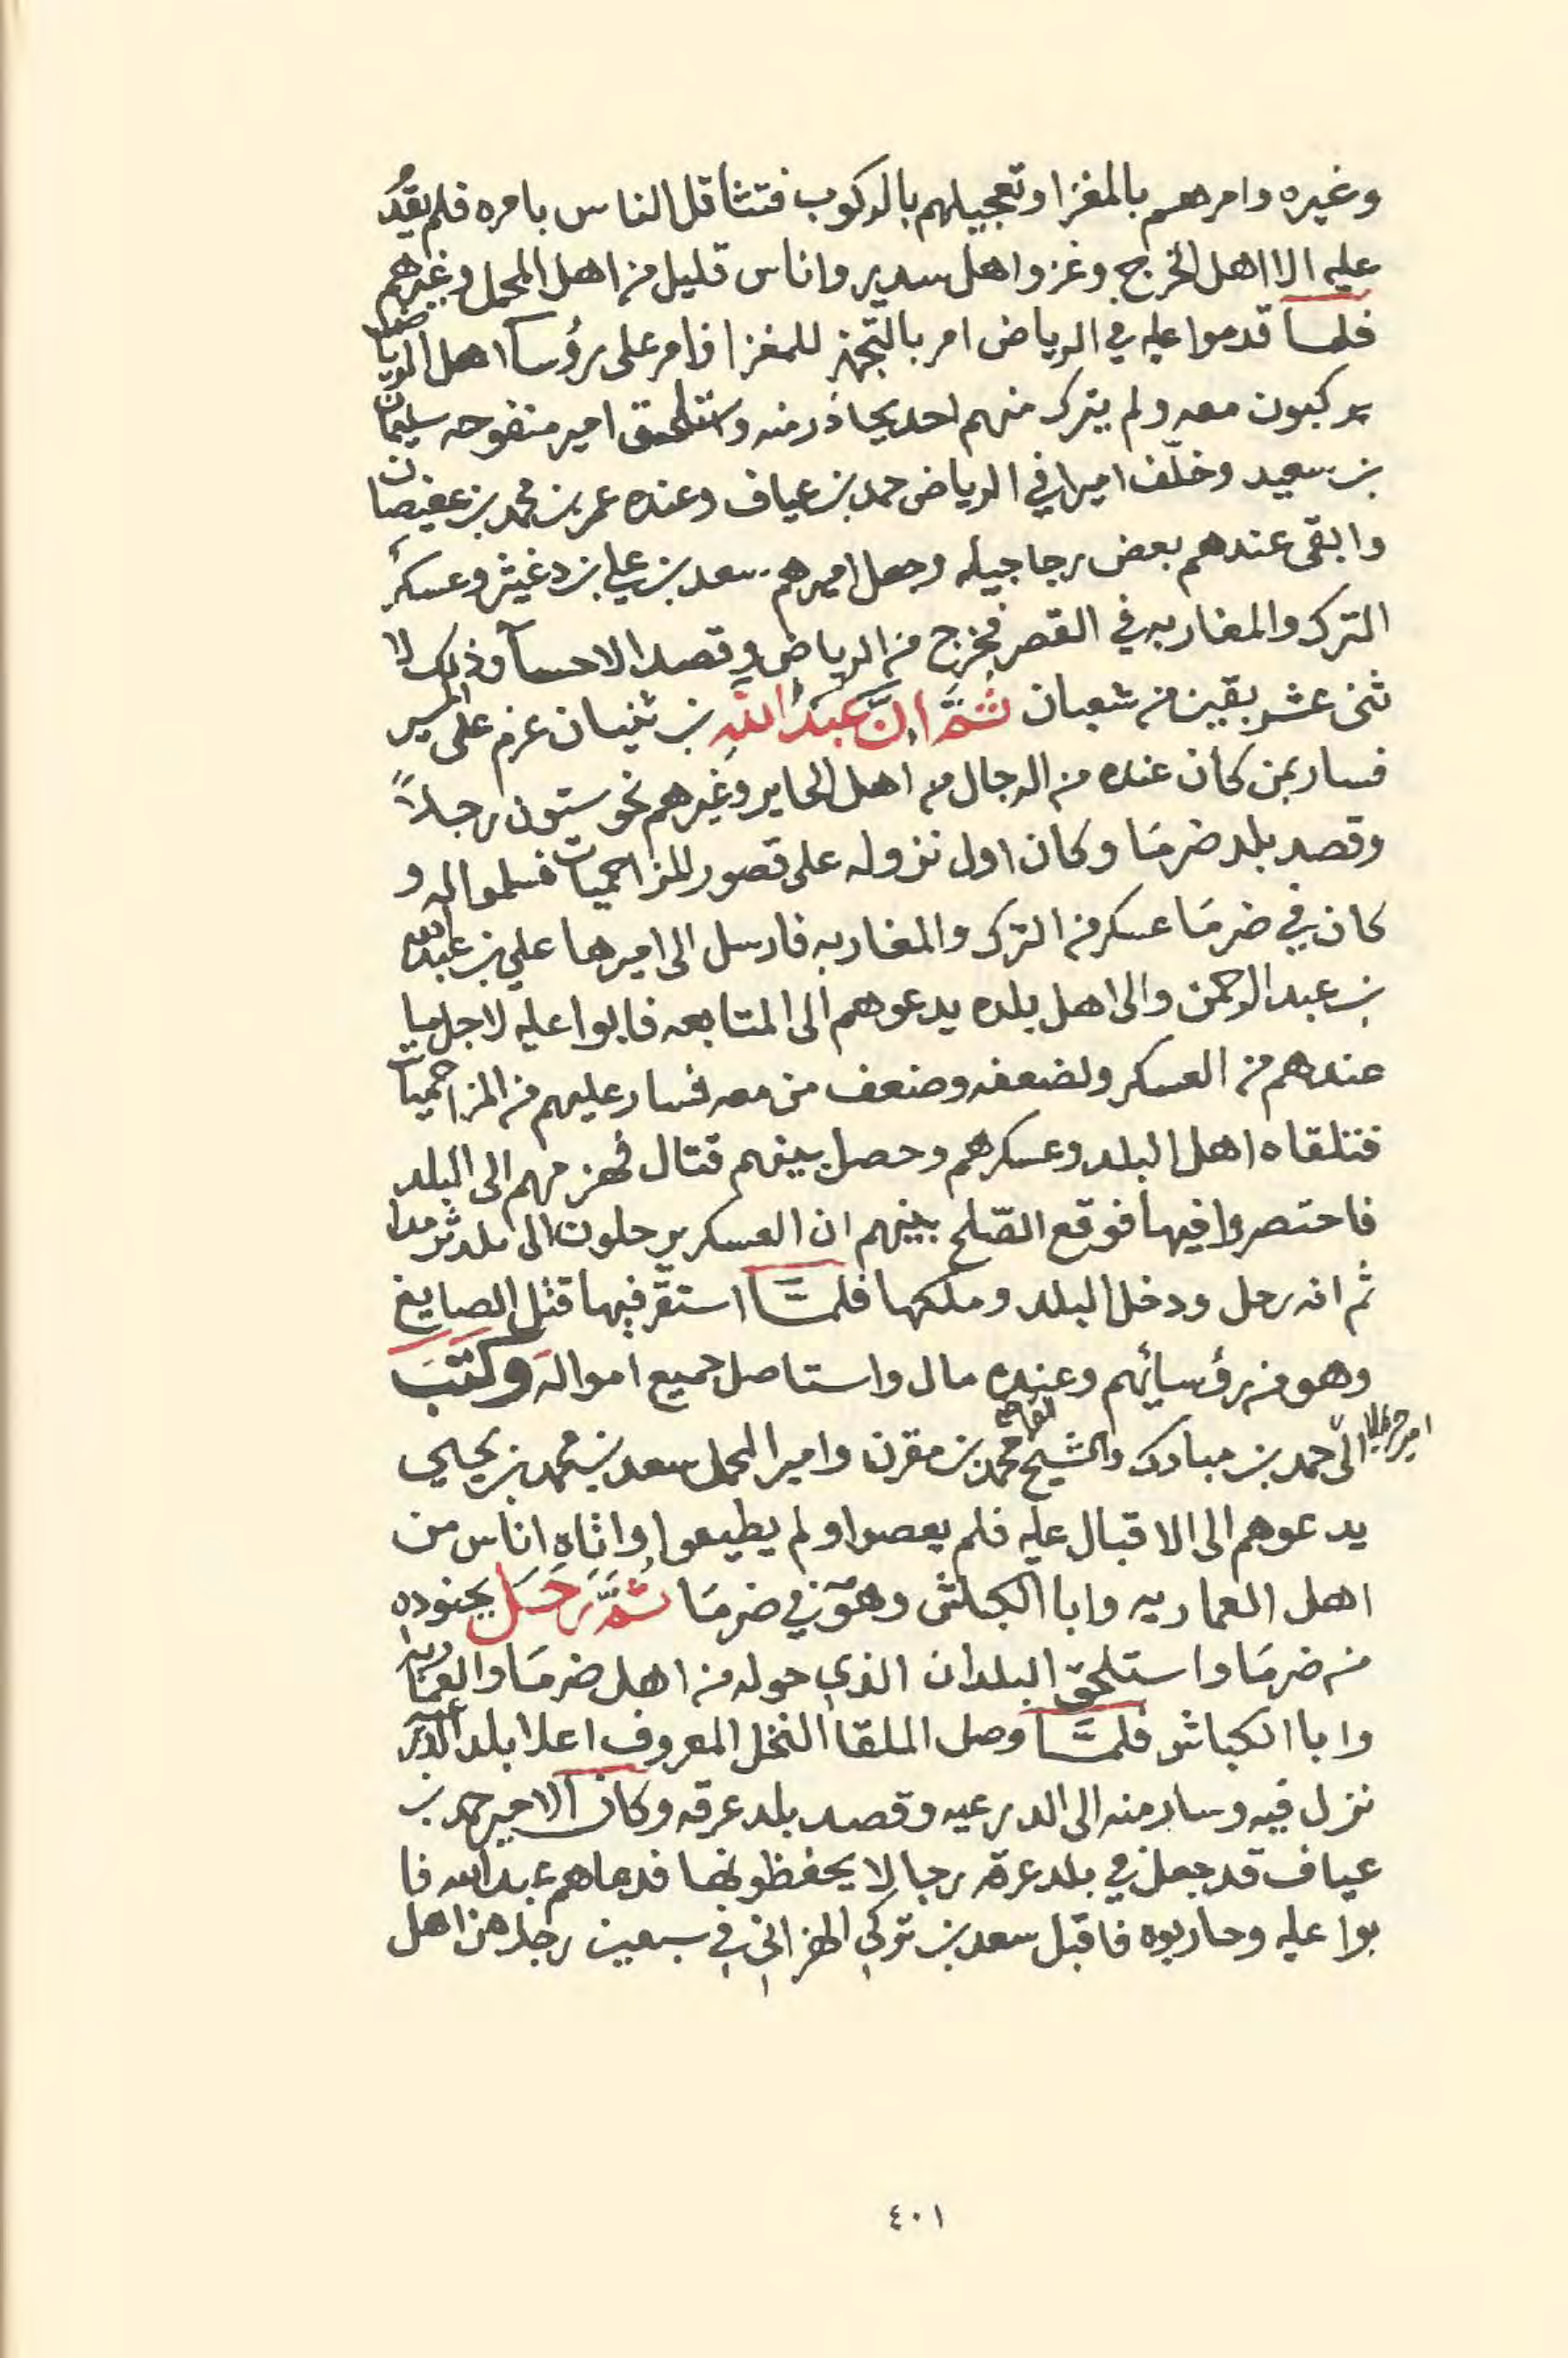 وغيره وامرهم بالمغزا وتعجيلهم بالركوب فتثاقل الناس بامره فلم يقدُ
عليه الا اهل الخرج وغزو اهل سدير واناس قليل من اهل المحمل وغيرهم
فلما قدموا عليه في الرياض امر بالتجهز للمغزا وامر على رؤسآ اهل الرياض
يركبون معه ولم يترك منهم احد يحاذر منه واستلحق امير منفوحه سليمان
بن سعيد وخلّف اميرا في الرياض حمد بن عياف وعنده عمر بن محمد بن عفيصان
وابقى عندهم بعض رجاجيله وجعل اميرهم سعد بن علي بن دغيثر وعسكر
الترك والمغاربه في القصر فخرج من الرياض وقصد الاحسآ وذلك لا
ثنى عشر بقين من شعبان ثُمَّ اِنَّ عَبدُ اللَّهِ بن ثنيان عزم على المسير
فسار بمن كان عنده من الرجال من اهل الحاير وغيرهم نحو ستون رجلاً
وقصد بلد ضرمَا وكان اول نزوله على قصور المزاحميات فسلموا له و
كان في ضرمَا عسكر من الترك والمغاربه فارسل الى اميرها علي بن عبدالله
بن عبد الرحمن والى اهل بلده يدعوهم الى المتابعه فابوا عليه لاجل ما
عندهم من العسكر ولضعفه وضعف من معه فسار عليهم من المزاحميات
فتلقاه اهل البلد وعسكرهم وحصل بينهم قتال فهزمهم الى البلد
فاحتصروا فيها فوقع الصّلح بينهم ان العسكر يرحلون الى بلد ثرمدا
ثم انه رحل ودخل البلد وملكها فلمَّا استقرّ فيها قتل الصايغ
وهو من رؤسائهم وعنده مال واستاصل جميع امواله وكَتَبَ
الى حمد بن مبارك والشيخ القاضي محمد بن مقرن وامير المحمل سعد بن محمد بن يحيى
امير حريملا
يدعوهم الى الاقبال عليه فلم يعصوا ولم يطيعوا واتاه اناس من
اهل العماريه وابا الكباش وهو في ضرمَا ثُمَّ رَحَلَ بجنوده
من ضرمَا واستلحق البلدان الذي حوله من اهل ضرمَا والعماريه
وابا الكباش فلمَّا وصل الملقا النخل المعروف اعلا بلد الدرعيه
نزل فيه وسار منه الى الدرعيه وقصد بلد عرقه وكان الامير حمد بن
عياف قد جعل في بلد عرقه رجالا يحفظونها فدعاهم عبدالله فا
بوا عليه وحاربوه فاقبل سعد بن تركي الهزاني في سبعين رجلا من اهل
٤٠١